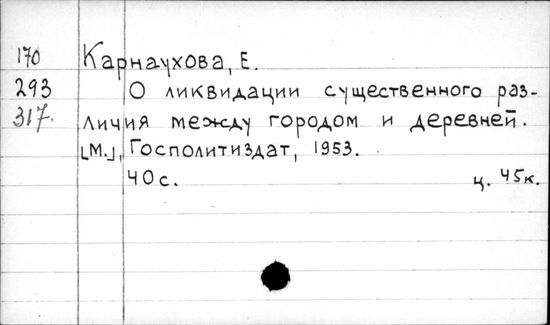 170 Карнаухова, Е.
293 О ликвидации существенного раз-
317. личия между городом и деревней.
[М.], Госполитиздат, 1953.
40 с. ц. 45к.